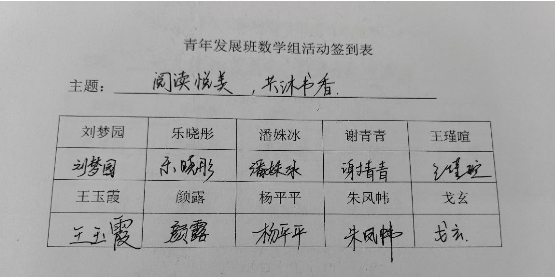 青年发展班数学组活动签到表
主题： 阅读悦美，共沐书香.
刘梦园 乐晓彤 潘姝冰 谢青青 王瑾暄
刘梦园 乐晓彤 潘姝冰 谢青青 王瑾暄
王玉霞 颜露 杨平平 朱风帏 戈玄
王玉霞 颜露 杨平平 朱风帏 戈玄